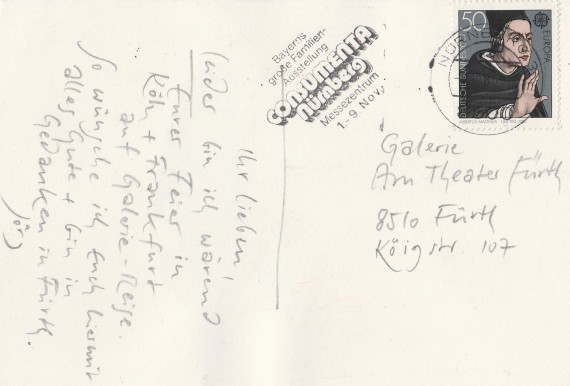 Ihr lieben!
leider bin ich wärend
Eurer Feier in
Köln + Frankfurt
auf Galerie-Reise.
So wünsche ich Euch hiermit
alles Gute + bin in
Gedanken in Fürth.
Bayerns
große Familien-
Ausstellung
CONSUMENTA
NÜRNBERG
Messezentrum
1.-9. Nov.
NÜRNB
50
EUROPA
DEUTSCHE BUNDESPOST
ALBERTUS MAGNUS
Galerie
Am Theater Fürth
8510 Fürth
Köigstr. 107